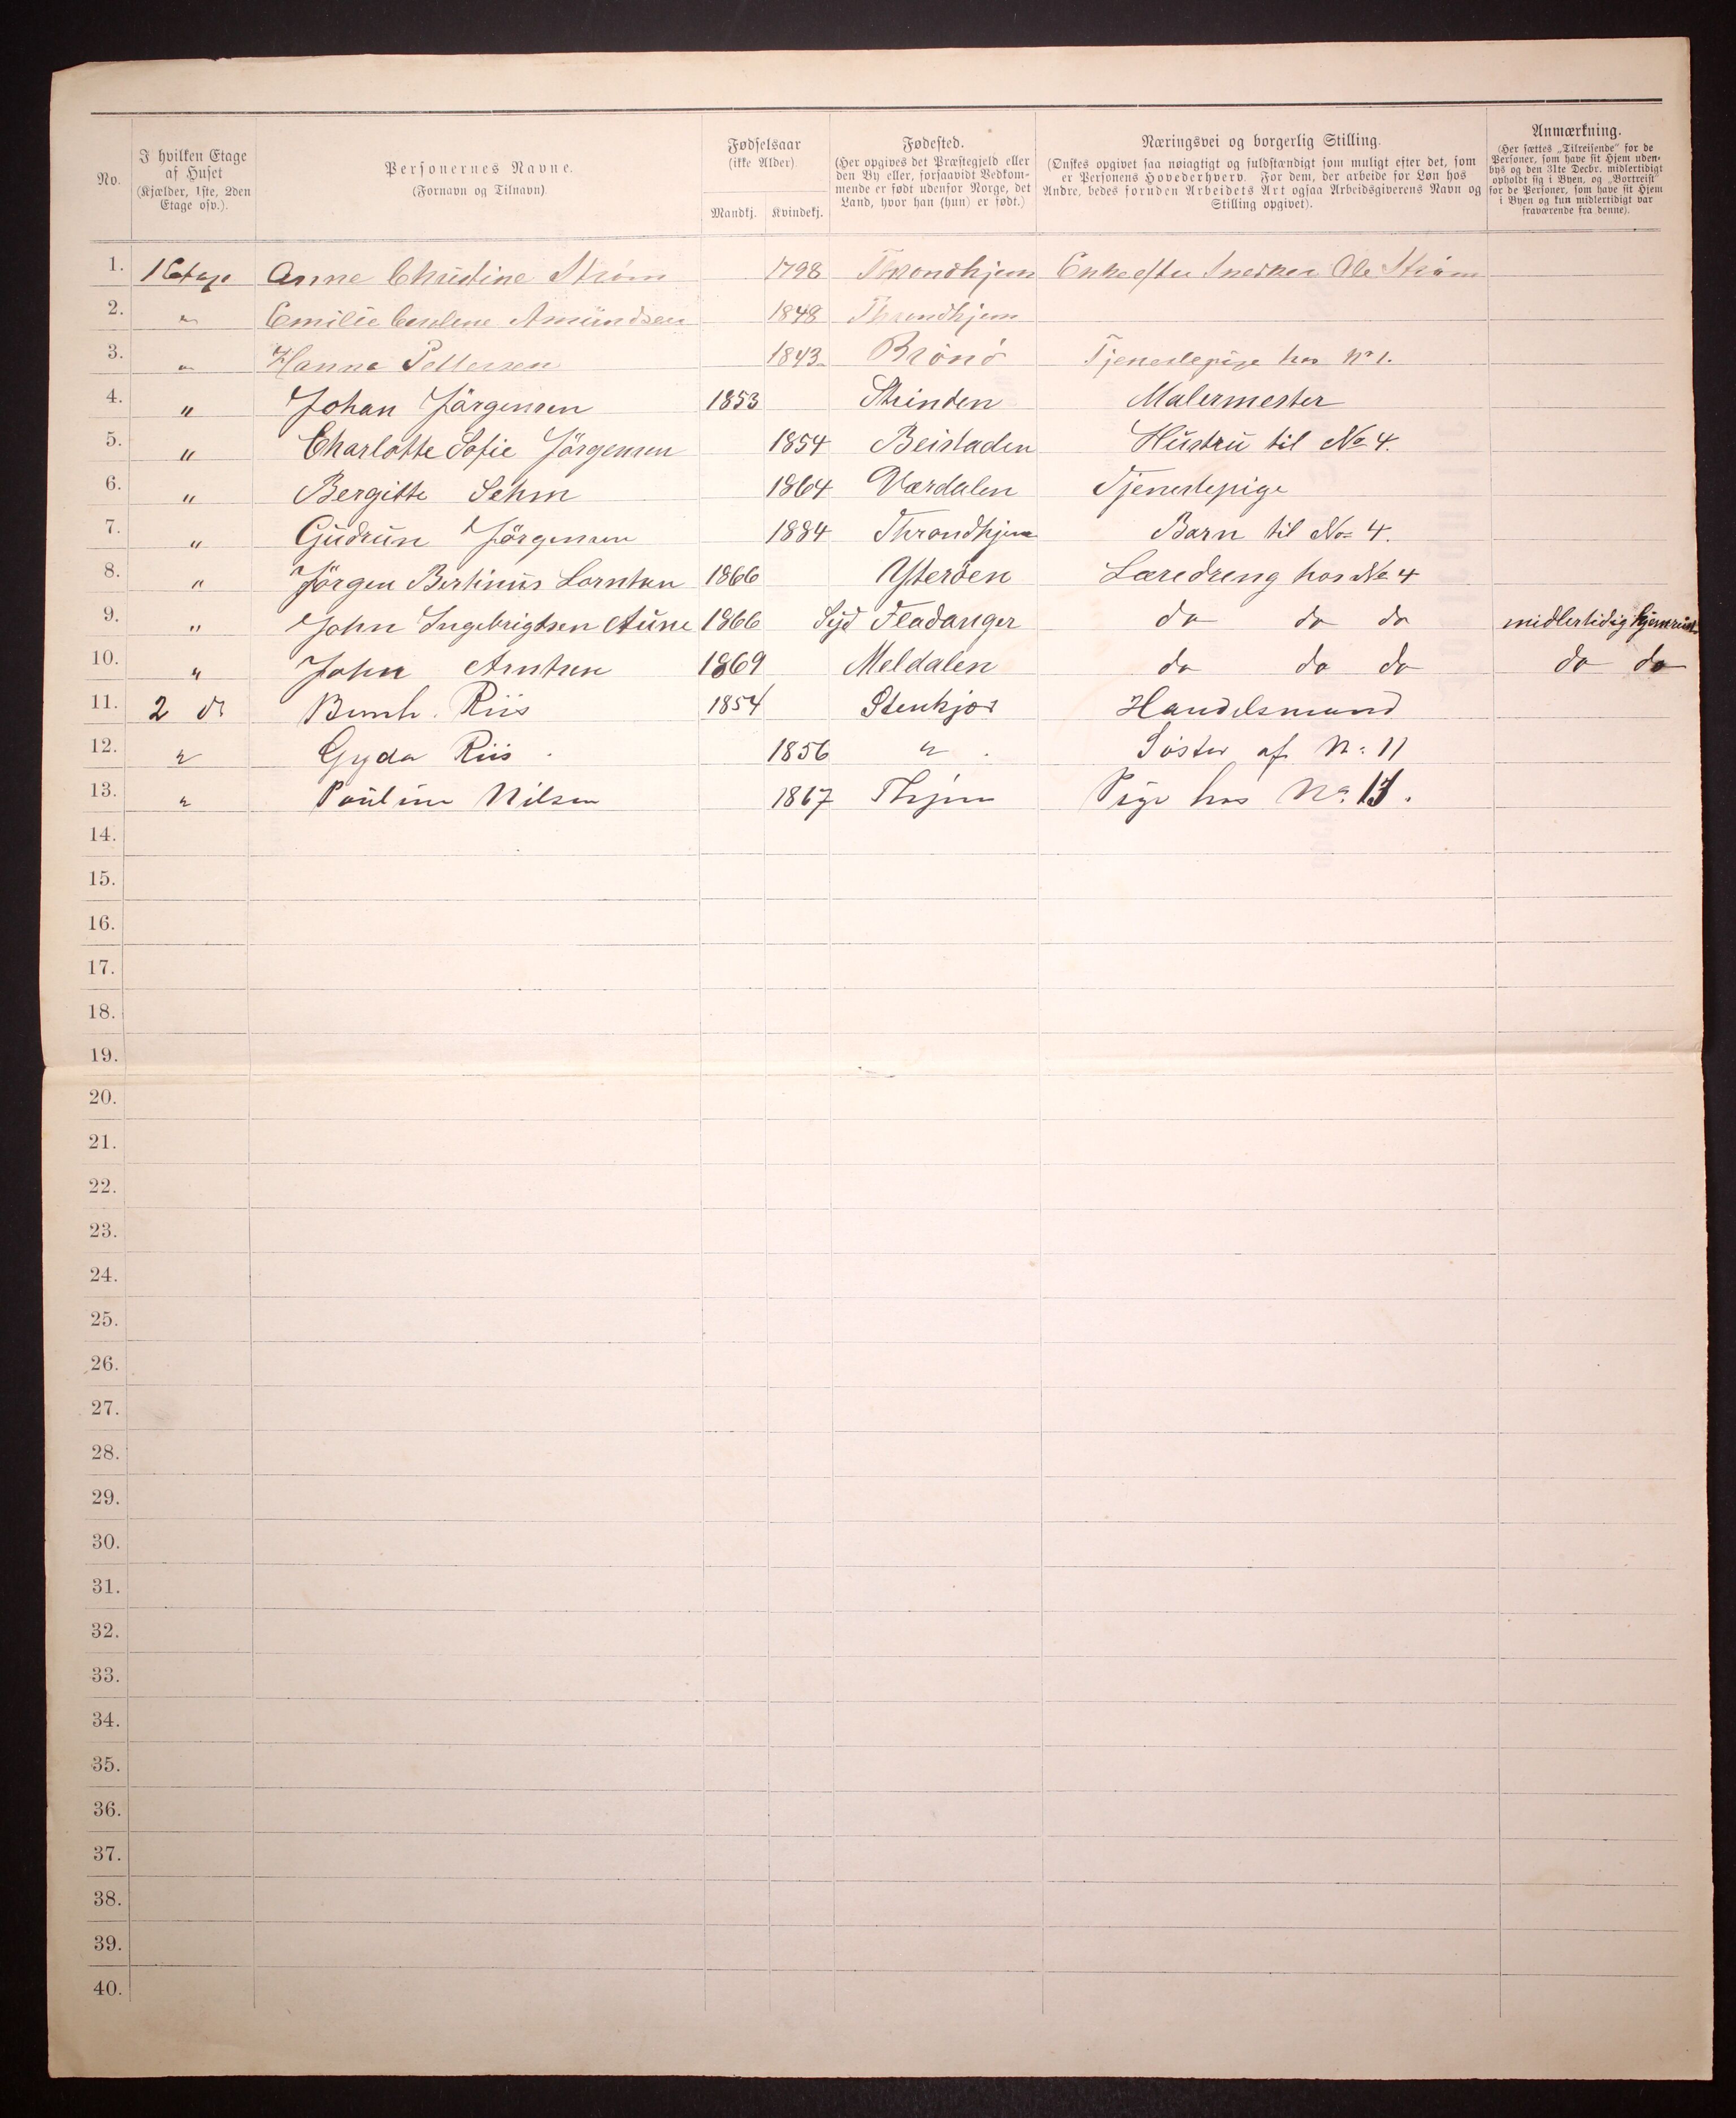 No.
I hvilken Etage af Huset (Kjælder, 1ste, 2den Etage osv.).
Personernes Navne. (Fornavn og Tilnavn)
Fødselsaar (ikke Alder)
Mandkj. Kvindekj.
Fødested. (Her opgives det Præstegjeld eller den By eller, forsaavidt Vedkommende er født udenfor Norge, det Land, hvor han (hun) er født.)
Næringsvei og borgerlig Stilling. (Ønskes opgivet saa nøiagtigt og fuldstændigt som muligt efter det, som er Personens Hovederhverv. For dem, der arbeide for Løn hos Andre, bedes foruden Arbeidets Art ogsaa Arbeidsgiverens Navn og Stilling opgivet).
Anmærkning. (Her sættes „Tilreisende“ for de Personer, som have sit Hjem udenbys og den 31te Decbr. midlertidigt opholdt sig i Byen, og „Bortreist“ for de Personer, som have sit Hjem i Byen og kun midlertidigt var fraværende fra denne).
1. 1 Etage Anne Christine Strøm 1798 Throndhjem Enke efter Snedker Ole Strøm
2. " Emilie Amündsen 1848 Throndhjem
3. " Hanna Pettersen 1843 Brönö Tjenestepige hos No 1.
4. " Johan Jörgensen 1853 Strinden Malermester
5. " Charlotte Sofie Jörgensen 1854 Beistaden Hüstrü til No 4.
6. " Bergitte Sehm 1864 Værdalen Tjenestepige
7. " Güdrün Jörgensen 1884 Throndhjem Barn til No 4.
8. " Jörgen Bertinüs Lorntsen 1866 Ytteröen Læredreng hos No 4
9. " John Ingebrigtsen Aüne 1866 Syd Fladanger do do do midlertidig hjemreist
10. " John Arntsen 1869 Meldalen do do do do do
11. 2 do Bernh. Riis 1854 Stenkjær Handelsmand
12. " Gyda Riis 1856 " Söster af No 11
13. " Pauline Nilsen 1867 Thjem Pige hos No 13.
14.
15.
16.
17.
18.
19.
20.
21.
22.
23.
24.
25.
26.
27.
28.
29.
30.
31.
32.
33.
34.
35.
36.
37.
38.
39.
40.